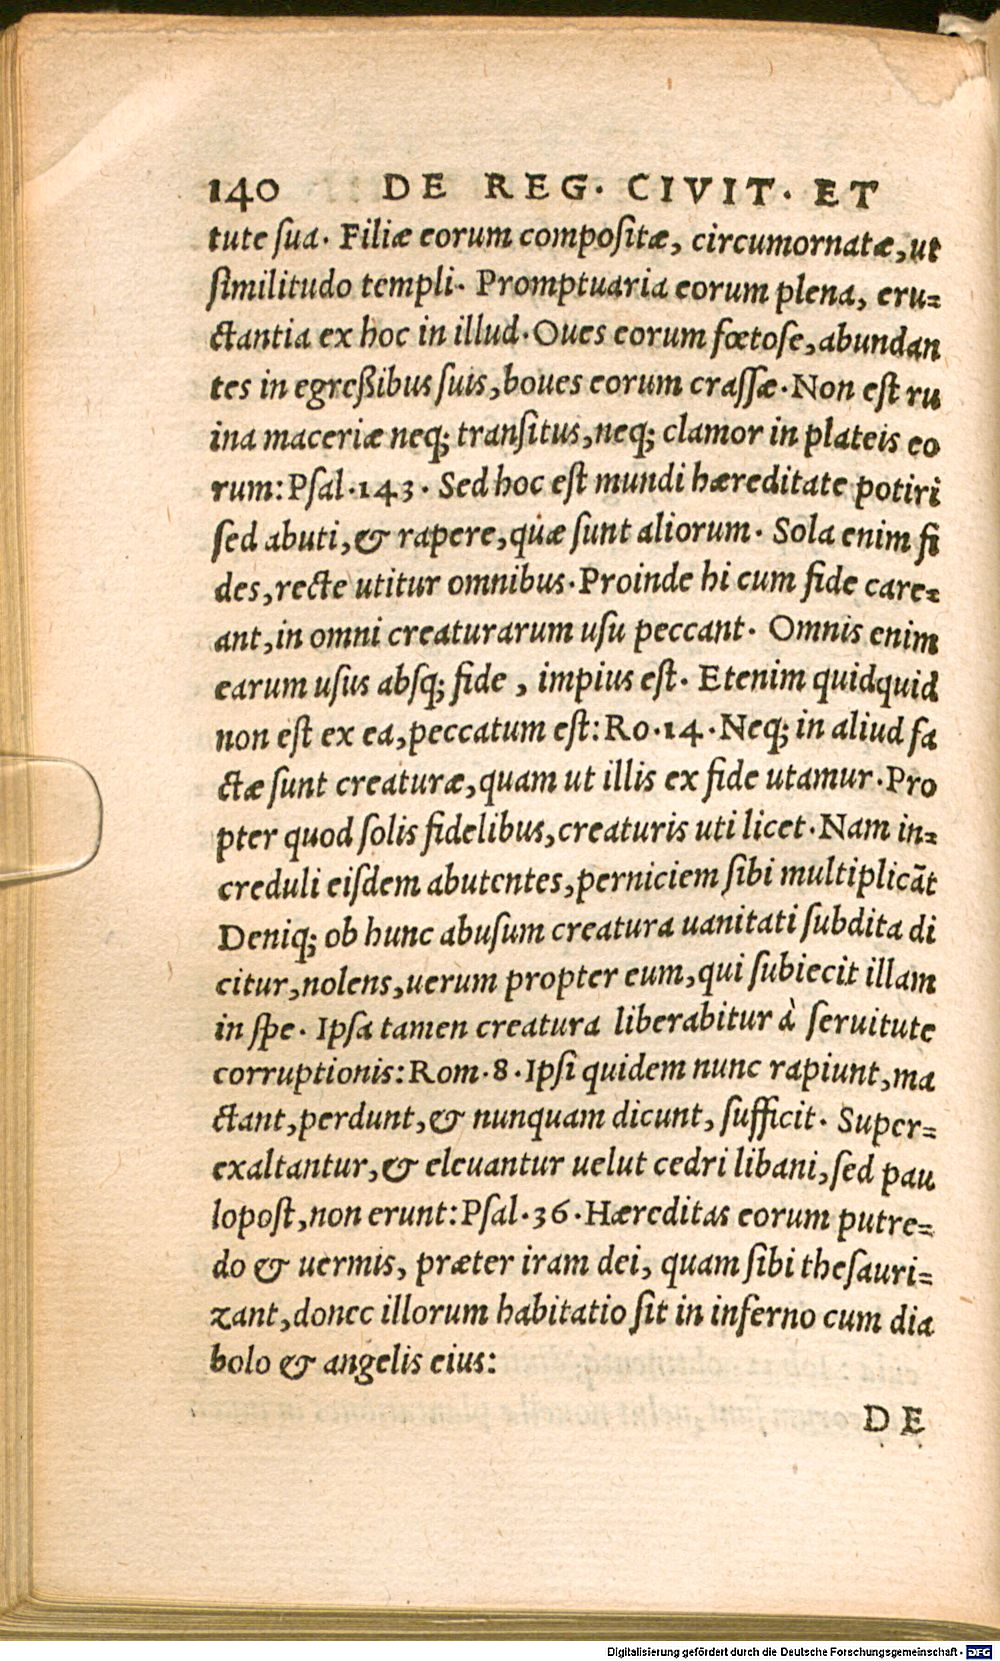 140 DE REG. CIVIT. ET
tute sua. Filiæ eorum compositæ, circumornatæ, ut
similitudo templi. Promptuaria eorum plena, eru-
ctantia ex hoc in illud. Oues eorum fœtose, abundan
tes in egreßibus suis, boues eorum crassæ. Non est ru
ina maceriæ neq; transitus, neq; clamor in plateis eo
rum: Psal. 143. Sed hoc est mundi hæreditate potiri
sed abuti, & rapere, quæ sunt aliorum. Sola enim fi
des, recte utitur omnibus. Proinde hi cum fide care-
ant, in omni creaturarum usu peccant. Omnis enim
earum usus absq; fide, impius est. Etenim quidquid
non est ex ea, peccatum est: Ro. 14. Neq; in aliud fa
ctæ sunt creaturæ, quam ut illis ex fide utamur. Pro
pter quod solis fidelibus, creaturis uti licet. Nam in-
creduli eisdem abutentes, perniciem sibi multiplicãt
Deniq; ob hunc abusum creatura uanitati subdita di
citur, nolens, uerum propter eum, qui subiecit illam
in spe. Ipsa tamen creatura liberabitur à seruitute
corruptionis: Rom. 8. Ipsi quidem nunc rapiunt, ma
ctant, perdunt, & nunquam dicunt, sufficit. Super-
exaltantur, & eleuantur uelut cedri libani, sed pau
lopost, non erunt: Psal. 36. Hæreditas eorum putre-
do & uermis, præter iram dei, quam sibi thesauri-
zant, donec illorum habitatio sit in inferno cum dia
bolo & angelis eius:
DE
Digitalisierung gefördert durch die Deutsche Forschungsgemeinschaft - DFG